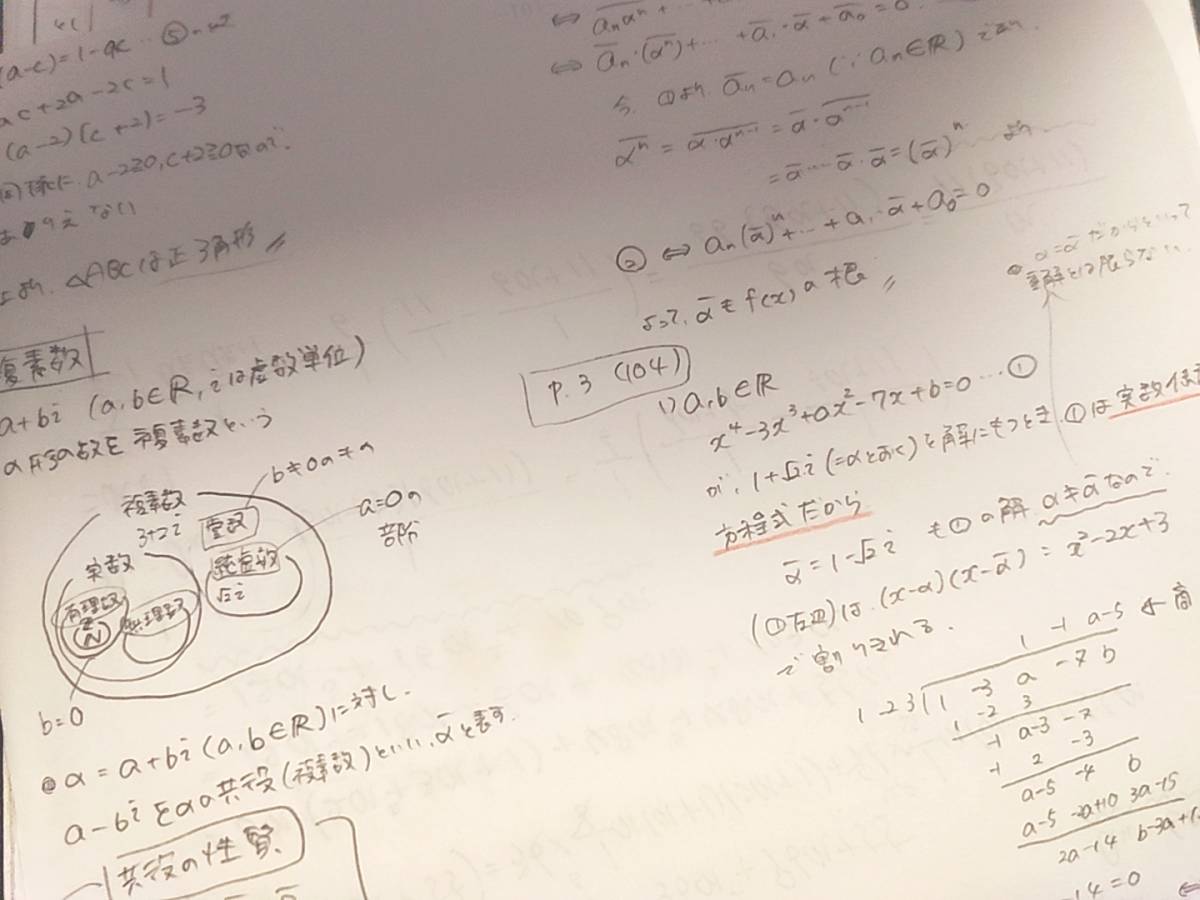 (a-c)=1-ac … ⑤
ac+2a-2c=1
(a-2)(c+2)=-3
同様に a-2≧0, c+2≧0なので
ありえない
より、△ABCは正3角形 //
複素数
a+bi (a,b∈ℝ, iは虚数単位)
の形の数を複素数という
複素数
3+2i
b≠0のとき
虚数
a=0の
部分
純虚数
√2i
実数
有理数
Z
N
無理数
b=0
◎ α=a+bi (a,b∈ℝ)に対し、
a-biをαの共役(複素数)といい、ᾱと表す.
共役の性質
⇔ ā_n·(α^n)‾+…+ā_1·ᾱ+ā_0=0
今、①より、ā_n=a_n (∵ a_n∈ℝ)
(α^n)‾=(α·α^{n-1})‾=ᾱ·(α^{n-1})‾
=ᾱ…ᾱ·ᾱ=(ᾱ)^n より
② ⇔ a_n(ᾱ)^n+…+a_1·ᾱ+a_0=0
よって、ᾱも f(x)の根 //
α=ᾱだからといって
重解とは限らない
p.3 (104)
1) a,b∈ℝ
x⁴-3x³+ax²-7x+b=0 … ①
が、1+√2i (=αとおく)を解にもつとき、①は実数係数
方程式だから
ᾱ=1-√2i も①の解 α≠ᾱなので、
(①左辺)は、(x-α)(x-ᾱ)=x²-2x+3
で割りきれる.
1 -1 a-5 ← 商
1 -2 3 ) 1 -3 a -7 b
1 -2 3
-1 a-3 -7
-1 2 -3
a-5 -4 b
a-5 -2a+10 3a-15
2a-14 b-3a+1
-14=0 ⇔